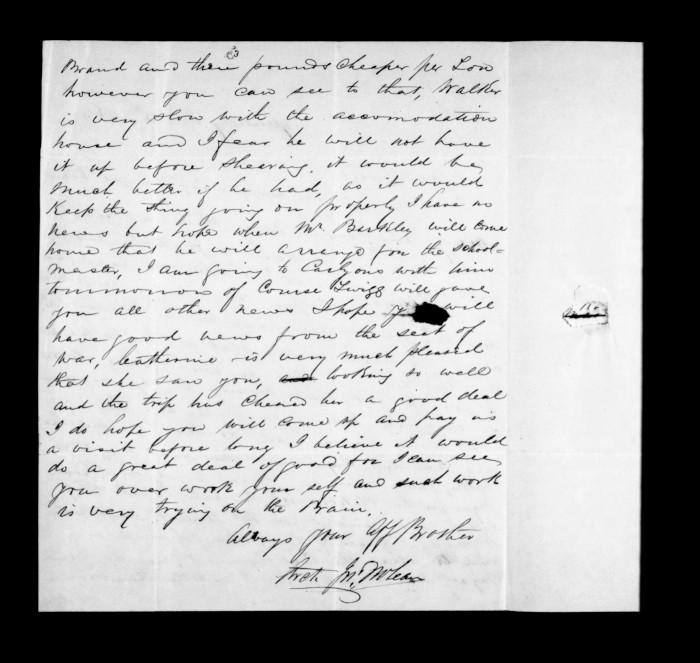 3
Brand and three pounds cheaper per Ton
however you can see to that, Walker
is very slow with the accomodation
house and I fear he will not have
it up before shearing, it would be
much better if he had, as it would
Keep the thing going on properly I have no
news but hope when Mr Barkley will come
home that he will arrange for the school-
master, I am going to with him
tommorrow of Course Twigg will gave
you all other news I hope will
have good news from the seat of
war, Catherine is very much pleased
that she saw you, and looking so well
and the trip has cheared her a good deal
I do hope you will come up and pay us
a visit before long I believe it would
do a great deal of good for I can see
you over work your self and such work
is very trying on the Brain.
Always your Aff Brother
Arch Jno McLean